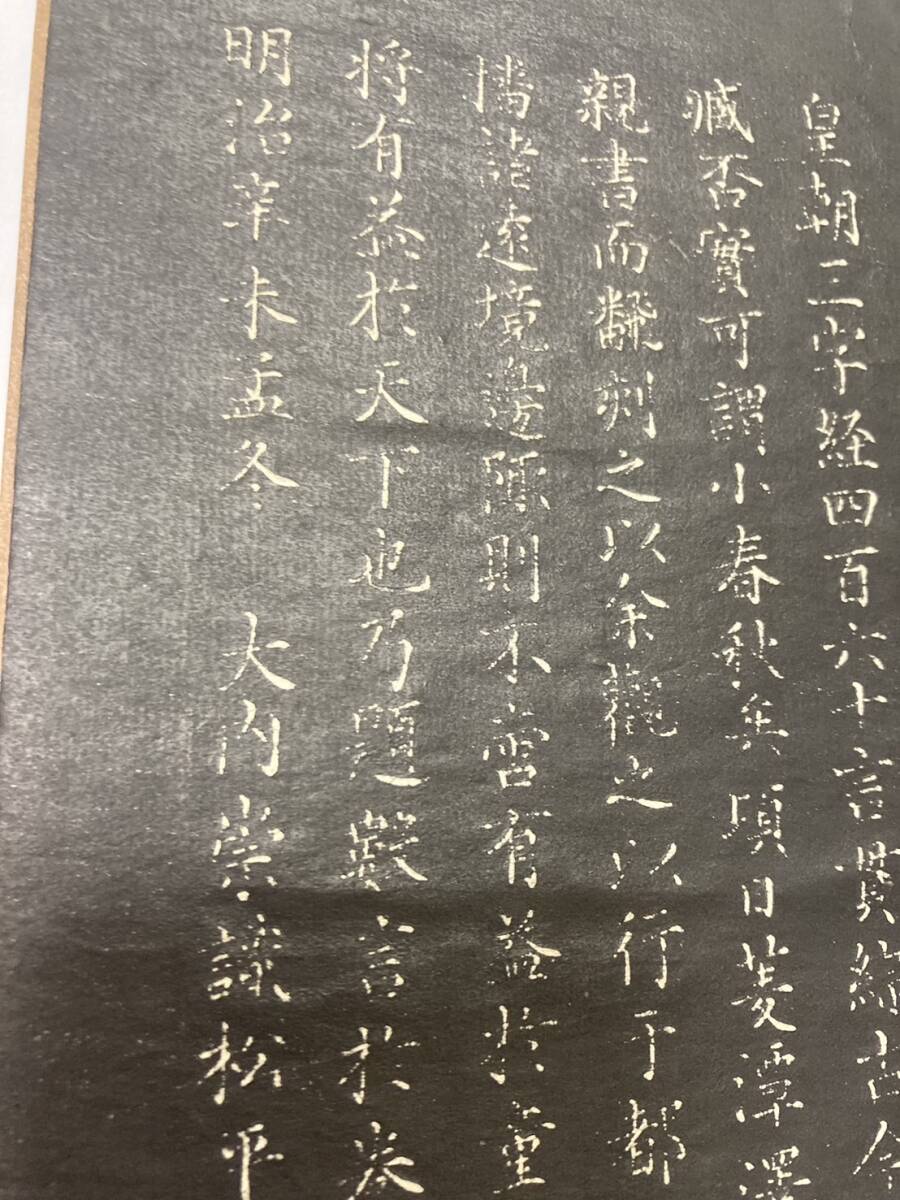 皇朝三字経四百六十言貫綜古今
臧否實可謂小春秋矣頃日菱潭澤
親書而飜刻之以余觀之以行于都
播諸遠境邊陬則不啻有益於童
将有益於天下也乃題數言於卷
明治辛卯孟冬 大内崇識松平